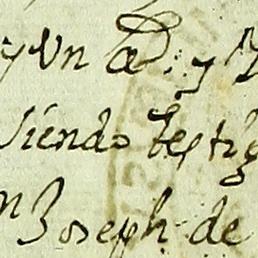 y Un
siendo testig
n Joseph de